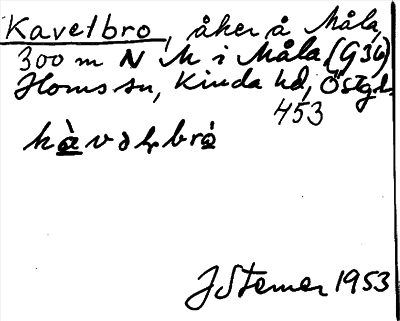 Kavelbro, åker å Måla,
300 m N M i Måla (G36)
Horns sn, Kinda hd, Östgl.
453
kàvəḷbrò
J Sterner 1953